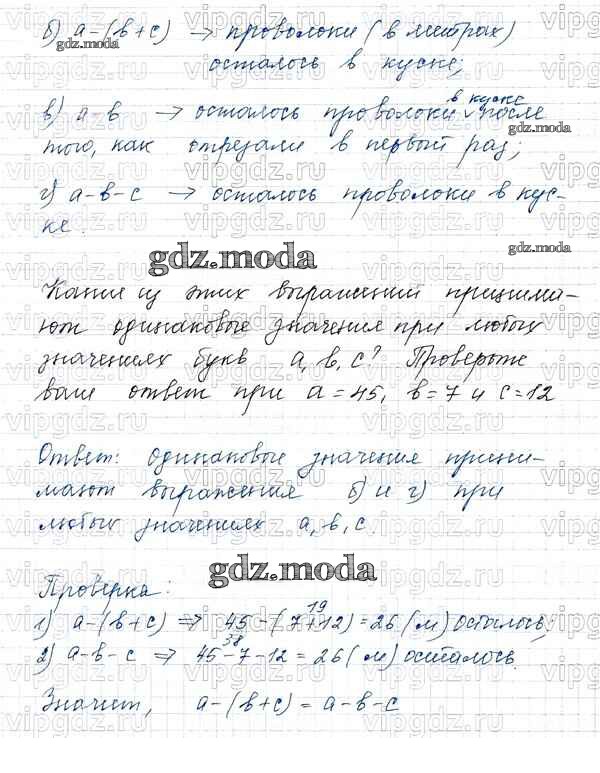 б) а-(в+с) → проволоки (в метрах)
gdz.moda
осталось в куске;
в куске
в) а-в → осталось проволоки ᵥ после
gdz.moda
того, как отрезали в первый раз;
г) а-в-с → осталось проволоки в кус-
ке.
gdz.moda
gdz.moda
Какие из этих выражений принима-
ют одинаковые значения при любых
значениях букв а, в, с? Проверьте
ваш ответ при а=45, в=7 и с=12
Ответ: одинаковые значения прини-
мают выражения б) и г) при
любых значениях а, в, с.
gdz.moda
Проверка:
19
1) а-(в+с) ⇒ 45-(7+12)=26(м) осталось;
38
2) а-в-с ⇒ 45-7-12=26(м) осталось.
Значит, а-(в+с)=а-в-с
vipgdz.ru